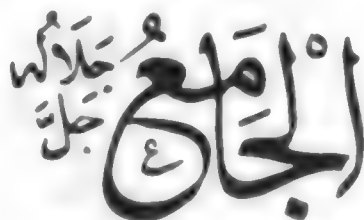 الْجَامَعُ جَلَّ جَلَالُهُ